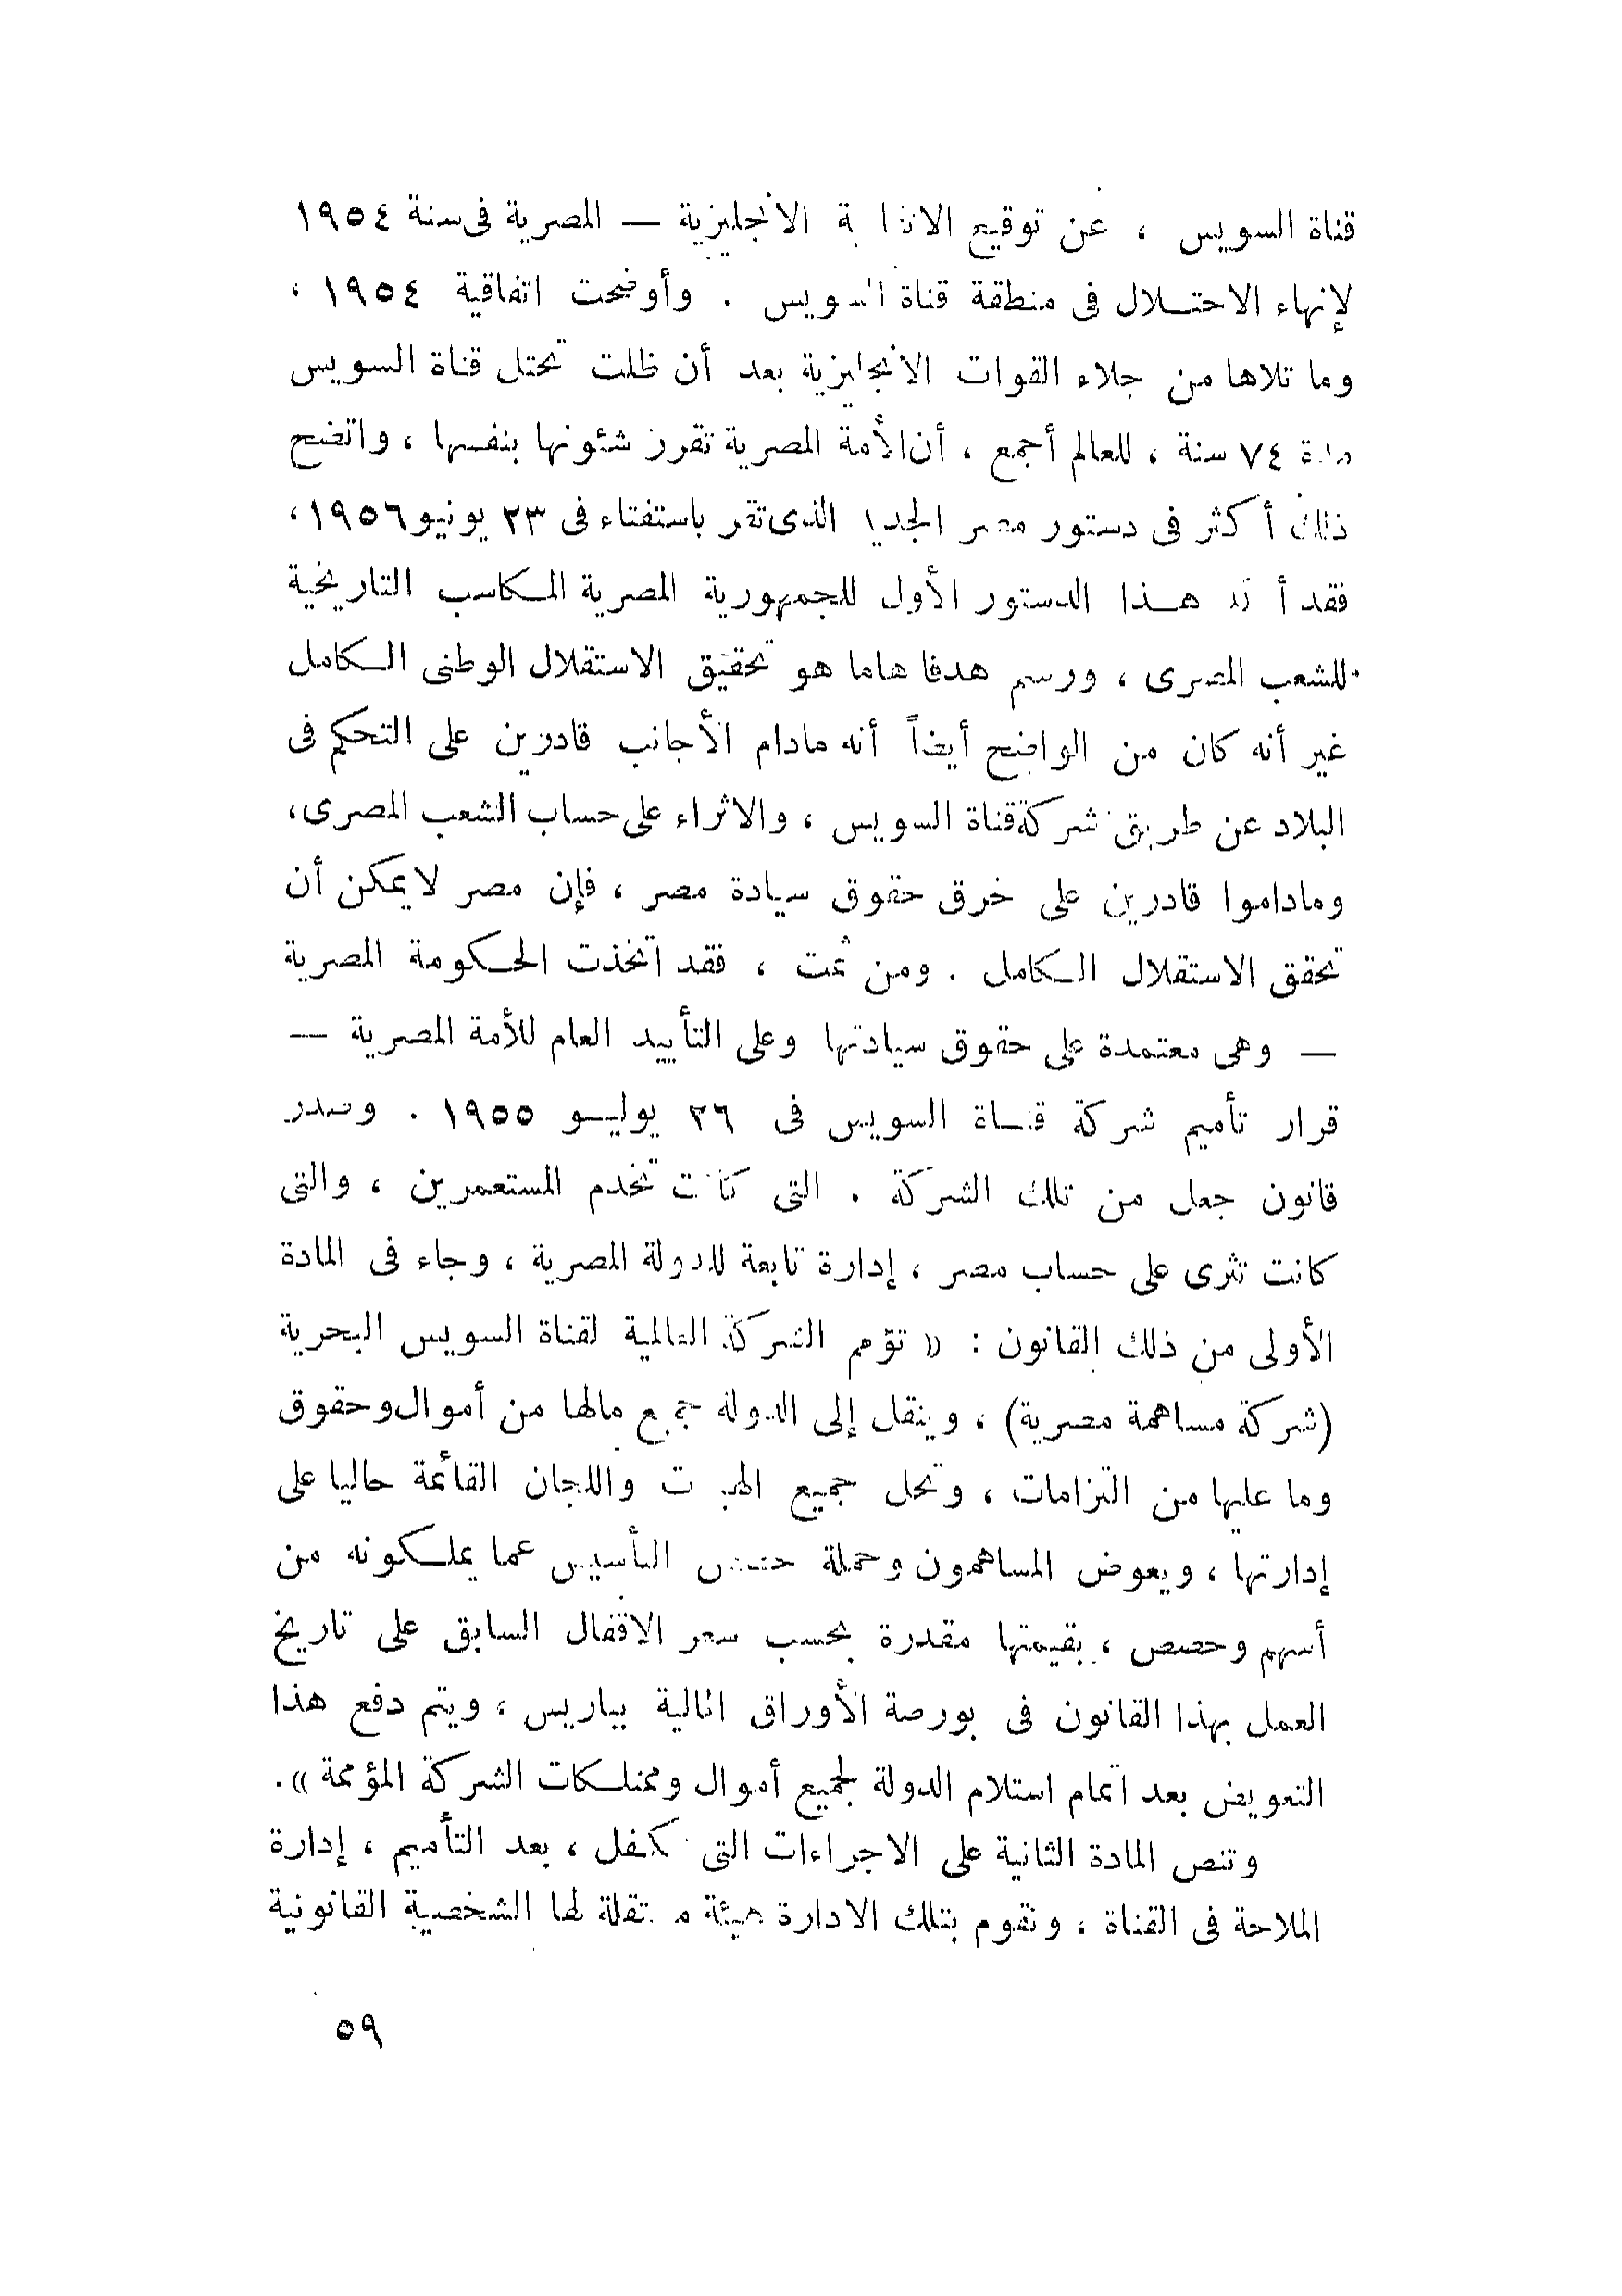 قناة السويس ، عن توقيع الانجليزية — المصرية فى سنة ١٩٥٤
لإنهاء الاحتلال فى منطقة قناة السويس . وأوضحت اتفاقية ١٩٥٤ ،
وما تلاها من جلاء القوات الانجليزية بعد أن ظلت تحتل قناة السويس
مدة ٧٤ سنة ، للعالم أجمع ، أن الأمة المصرية تقرر شئونها بنفسها ، واتضح
ذلك أكثر فى دستور مصر الذى تقرر باستفتاء فى ٢٣ يونيو ١٩٥٦ ،
فقد هذا الدستور الأول للجمهورية المصرية المكاسب التاريخية
للشعب المصرى ، ورسم هدفا هاما هو تحقيق الاستقلال الوطنى الكامل
غير أنه كان من الواضح أيضاً أنه مادام الأجانب قادرين على التحكم فى
البلاد عن طريق شركة قناة السويس ، والاثراء على حساب الشعب المصرى ،
وماداموا قادرين على خرق حقوق سيادة مصر ، فإن مصر لا يمكن أن
تحقق الاستقلال الكامل . ومن ثمت ، فقد اتخذت الحكومة المصرية
— وهى معتمدة على حقوق سيادتها وعلى التأييد العام للأمة المصرية —
قرار تأميم شركة قناة السويس فى ٢٦ يوليو ١٩٥٥ . وصدر
قانون جعل من تلك الشركة . التى كانت تخدم المستعمرين ، والتى
كانت تثرى على حساب مصر ، إدارة تابعة للدولة المصرية ، وجاء فى المادة
الأولى من ذلك القانون : « تؤمم الشركة العالمية لقناة السويس البحرية
(شركة مساهمة مصرية) ، وينقل إلى الدولة جميع مالها من أموال وحقوق
وما عليها من التزامات ، وتحل جميع واللجان القائمة حاليا على
إدارتها ، ويعوض المساهمون وحملة حصص التأسيس عما يملكونه من
أسهم وحصص ، بقيمتها مقدرة بحسب سعر الاقفال السابق على تاريخ
العمل بهذا القانون فى بورصة الأوراق المالية بباريس ، ويتم دفع هذا
التعويض بعد اتمام استلام الدولة لجميع أموال وممتلكات الشركة المؤممة » .
وتنص المادة الثانية على الاجراءات التى تكفل ، بعد التأميم ، إدارة
الملاحة فى القناة ، وتقوم بتلك الادارة هيئة مستقلة لها الشخصية القانونية
٥٩